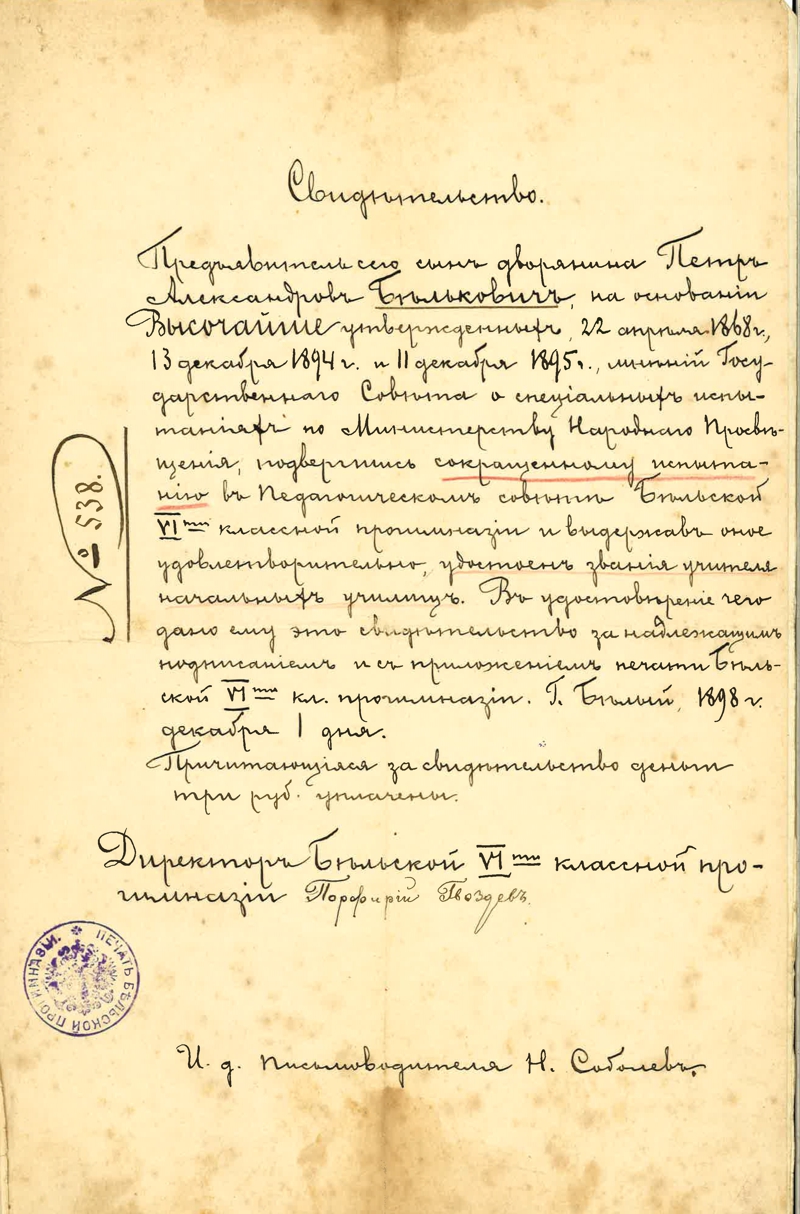 Свидѣтельство.
Предъявитель сего сынъ дворянина Петръ
Александровъ Бѣльковичъ, на основаніи
Высочайше утвержденныхъ, 22 апрѣля 1868 г.,
13 декабря 1894 г. и 11 декабря 1895 г., мнѣній Госу-
дарственнаго Совѣта о спеціальныхъ испы-
таніяхъ по Министерству Народнаго Просвѣ-
щенія, подвергшись сокращенному испыта-
нію въ Педагогическомъ совѣтѣ Бѣльской
VI-ти классной прогимназіи и выдержавъ оное
удовлетворительно, удостоенъ званія учителя
начальныхъ училищъ. Въ удостовѣреніе чего
дано ему это свидѣтельство за надлежащимъ
подписаніемъ и съ приложеніемъ печати Бѣль-
ской VI-ти кл. прогимназіи. Г. Бѣлый, 1898 г.
декабря 1 дня.
Причитающіяся за свидѣтельство деньги
три руб. уплачены.
№ 538.
Директоръ Бѣльской VI-ти классной про-
гимназіи Порфирій Гвоздевъ.
ПЕЧАТЬ БѢЛЬСКОЙ ПРОГИМНАЗІИ.
И. д. письмоводителя Н. Соболевъ.